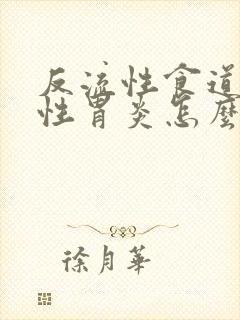 反流性食道
性胃炎怎麽
徐月華